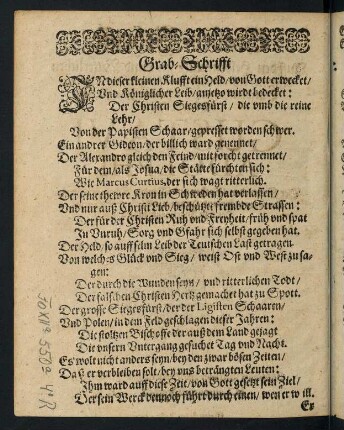 Grab-Schrifft
IN dieser kleinen Klufft ein Held / von Gott erwecket /
Vnd Königlicher Leib / anjetzo wirdt bedecket:
Der Christen Siegesfürst / die vmb die reine
Lehr /
Von der Papisten Schaar / gepresset worden schwer.
Ein andrer Gideon / der billich ward genennet /
Der Alexandro gleich den Feind / mit forcht getrennet /
Für dem / als Josua / die Stätte fürchten sich:
Wie Marcus Curtius, der sich wagt ritterlich.
Der seine thewre Kron in Schweden hat verlassen /
Vnd nur auß Christi Lieb / beschützt frembde Strassen:
Der für der Christen Ruh vnd Freyheit / früh vnd spat
In Vnruh / Sorg vnd Gfahr sich selbst gegeben hat.
Der Held / so auff seim Leib der Teutschen Last getragen.
Von welches Glück vnd Sieg / weist Ost vnd West zu sa-
gen:
Der durch die Wunden seyn / vnd ritterlichen Todt /
Der falschen Christen Hertz gemachet hat zu Spott.
Der grosse Siegesfürst / der der Ligisten Schaaren /
Vnd Polen / in dem Feld geschlagen dieser Jahren:
Die stoltzen Bischoffe der auß dem Land gejagt
Die vnsern Vntergang gesuchet Tag vnd Nacht.
Es wolt nicht anders seyn / bey den zwar bösen Zeiten /
Daß er verbleiben solt / bey vns beträngten Leuten:
Ihm ward auff diese Zeit / von Gott gesetzt sein Ziel /
Der sein Werck dennoch führt durch einen / wen er will.
Er